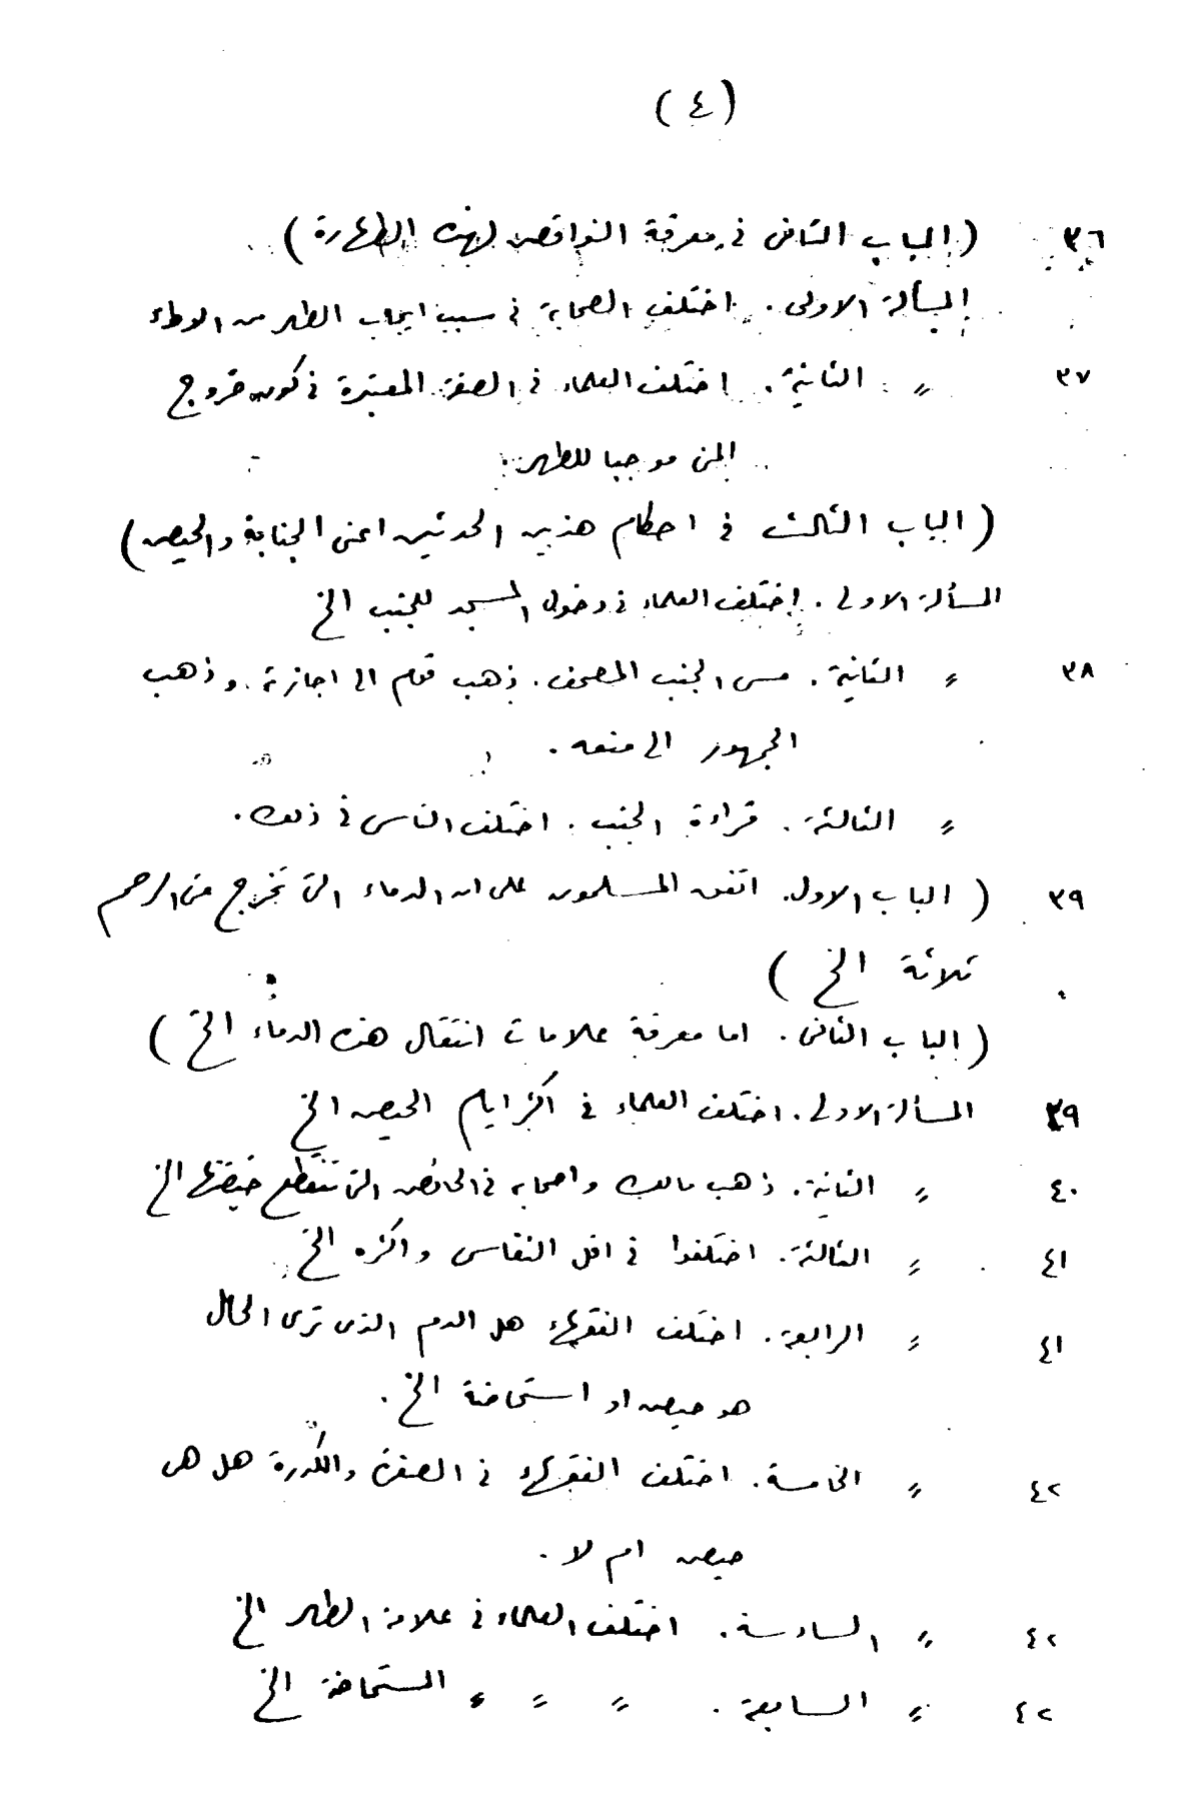 (٤)
٣٦ (الباب الثانى فى معرفة النواقض لهذه الطهارة)
المسألة الاولى. اختلف الصحابة فى سبب ايجاب الطهر من الوطء
٣٧ 〃 الثانية. اختلف العلماء فى الصفة المعتبرة فى كون خروج
المنى موجبا للطهر.
(الباب الثالث فى احكام هذين الحدثين اعنى الجنابة والحيض)
المسألة الاولى. اختلف العلماء فى دخول المسجد للجنب الخ
٣٨ 〃 الثانية. مس الجنب المصحف. ذهب قوم الى اجازته. وذهب
الجمهور الى منعه.
〃 الثالثة. قراءة الجنب. اختلف الناس فى ذلك.
٣٩ (الباب الاول. اتفق المسلمون على ان الدماء التى تخرج من الرحم
ثلاثة الخ)
(الباب الثانى. اما معرفة علامات انتقال هذه الدماء الخ)
٣٩ المسألة الاولى. اختلف العلماء فى اكثر ايام الحيض الخ
٤٠ 〃 الثانية. ذهب مالك واصحابه فى الحائض التى تنقطع حيضتها الخ
٤١ 〃 الثالثة. اختلفوا فى اقل النفاس واكثره الخ
٤١ 〃 الرابعة. اختلف الفقهاء هل الدم الذى ترى الحامل
هو حيض او استحاضة الخ.
٤٢ 〃 الخامسة. اختلف الفقهاء فى الصفرة والكدرة هل هى
حيض ام لا.
٤٢ 〃 السادسة. اختلف العلماء فى علامة الطهر الخ
٤٢ 〃 السابعة. 〃 〃 〃 المستحاضة الخ